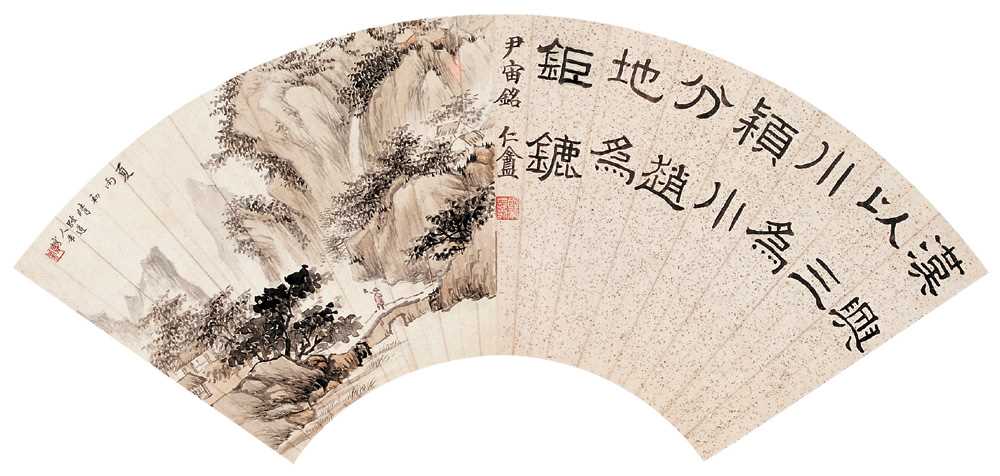 漢興
以三
川為
潁川
分趙
地為
鉅鏕
尹宙銘 仁盫
夏雨初晴